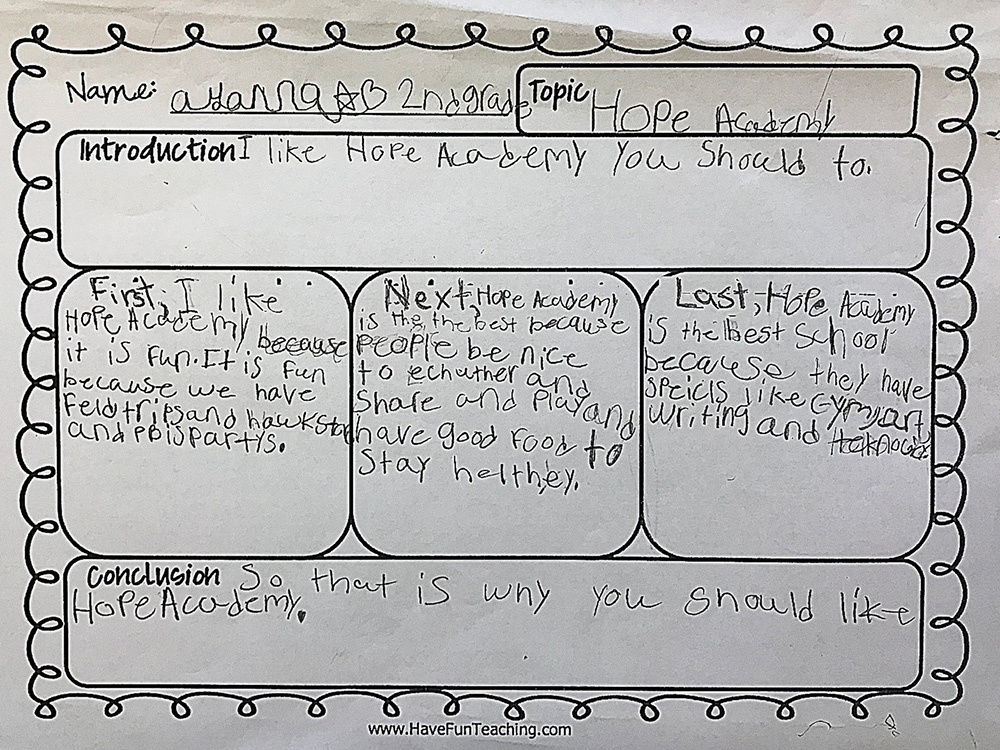 Name: adanna AB 2nd grade
Topic Hope Academy
Introduction I like Hope Academy you Should to.
First, I like
Hope Academy because
it is Fun. It is Fun
because we have
Feld trips and hawk Sto
and PBis Partys.
Next, Hope Academy
is the, the best because
PeoPle be nice
to echuther and
Share and Play and
have good Food to
Stay helthey.
Last, Hope Academy
is the Best School
because they have
Speicls like Gym, art,
Writing and
Conclusion So that is why you should like
Hope Academy.
www.HaveFunTeaching.com